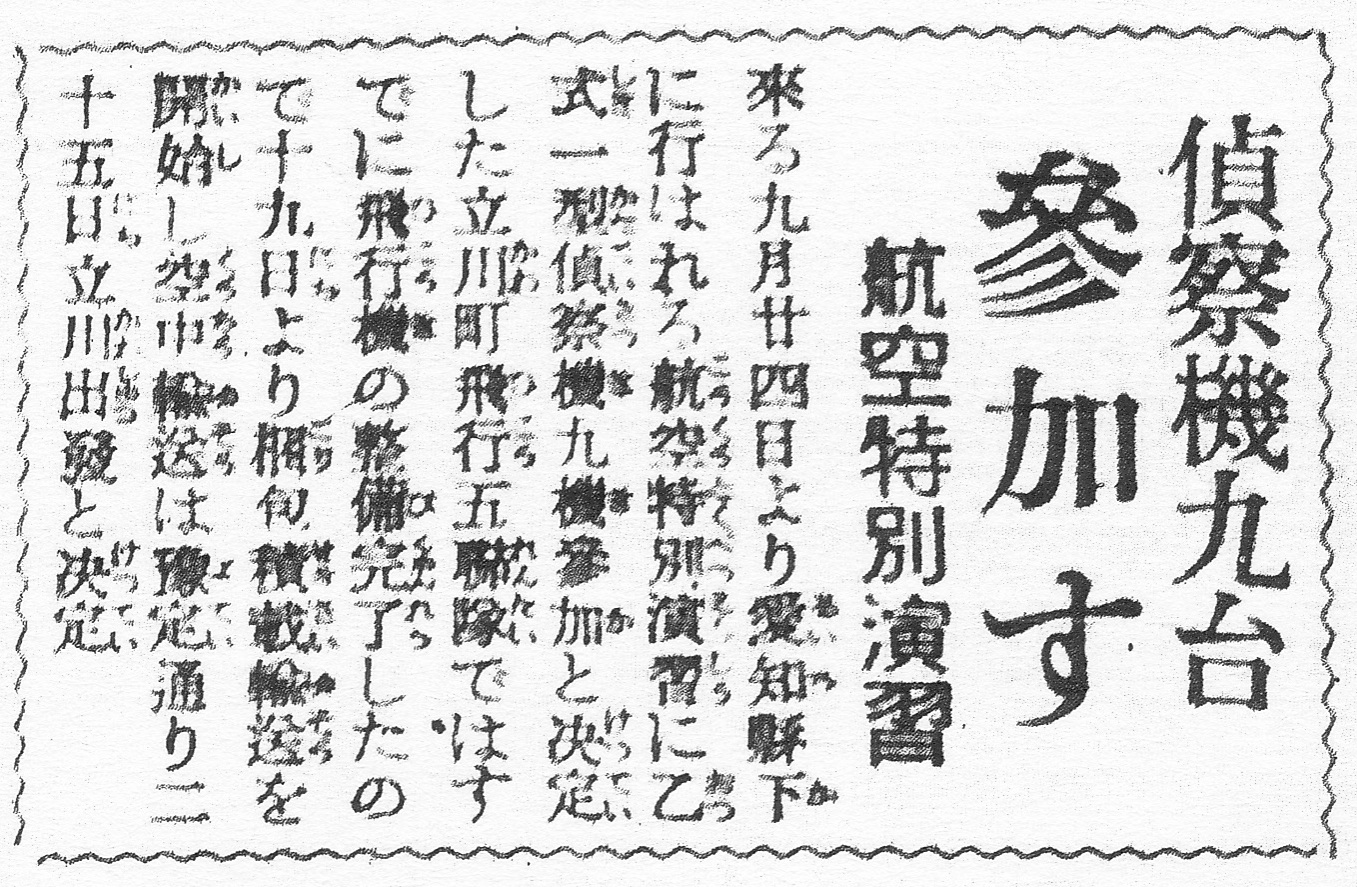 偵察機九台
參加す
航空特別演習
來る九月廿四日より愛知縣下
に行はれる航空特別演習に乙
式一型偵察機九機參加と决定
した立川町飛行五聯隊ではす
でに飛行機の整備完了したの
で十九日より梱包積載輸送を
開始し空中輸送は豫定通り二
十五日立川出發と决定